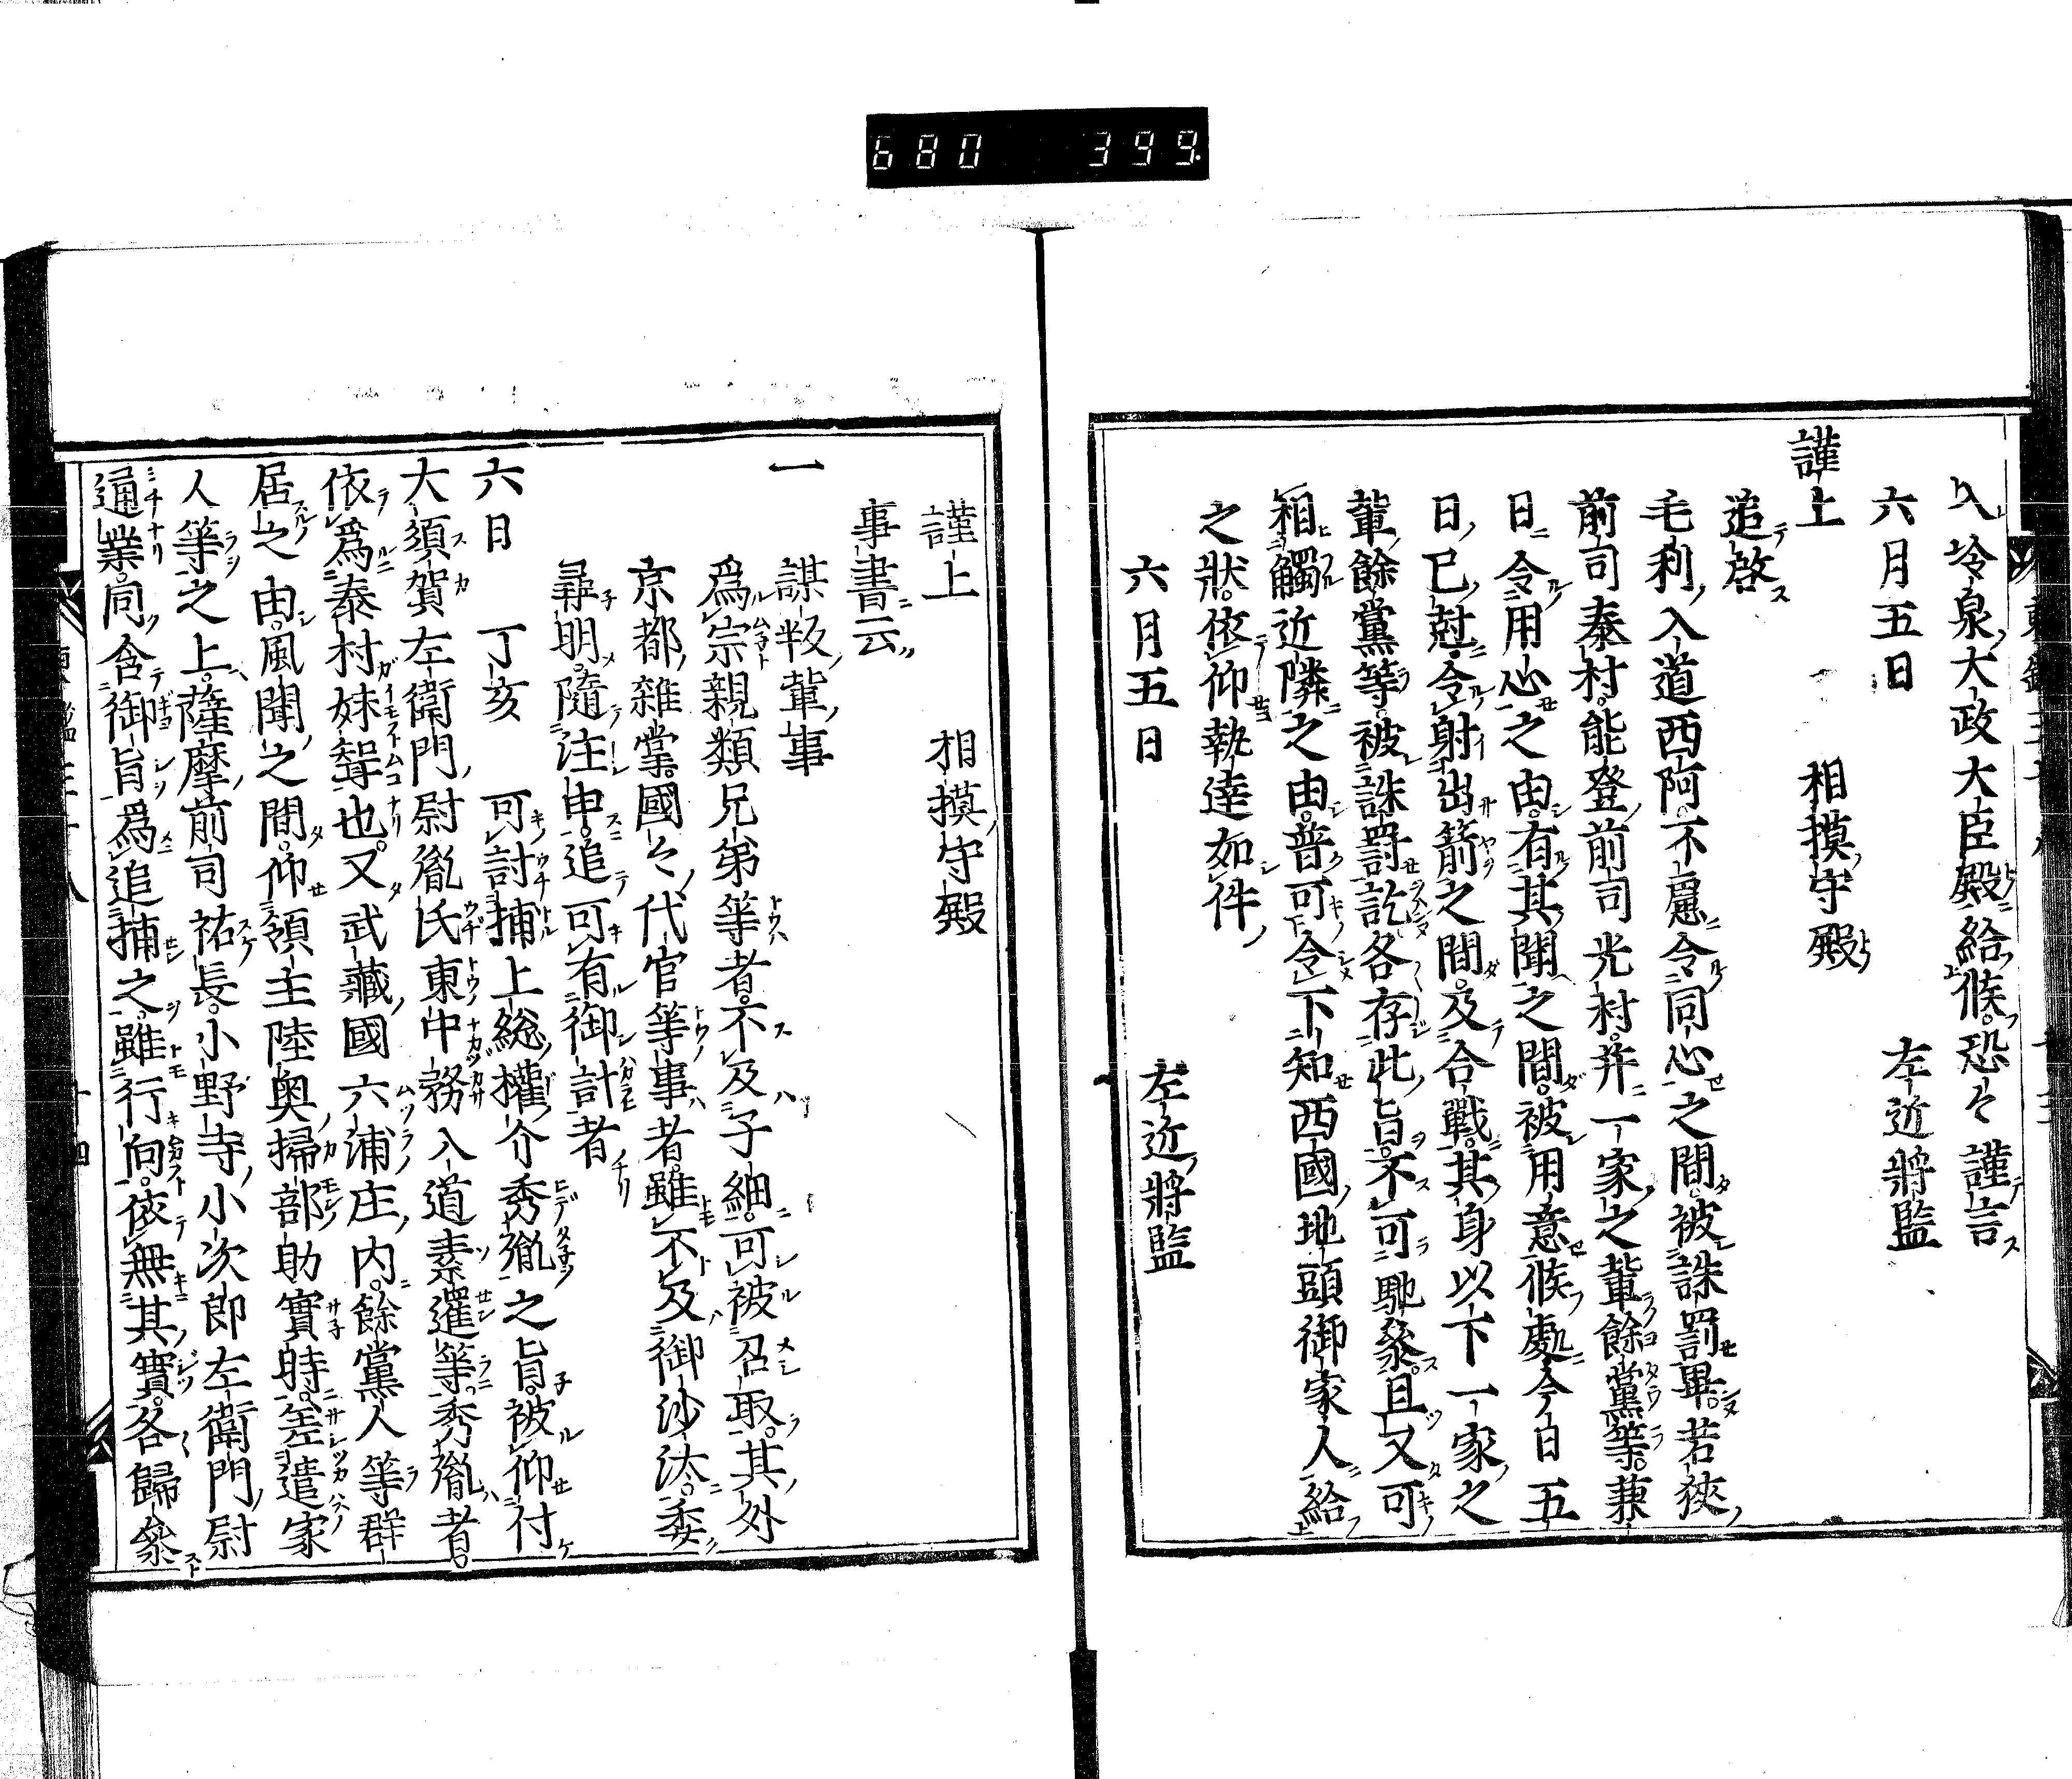 680 399
入冷泉大政大臣殿給候恐々謹言
六月五日 左近將監
謹上 相摸守殿
追啓
毛利入道西阿不慮令同心之間被誅罰畢若狹
前司泰村能登前司光村并一家之輩餘黨等兼
日令用心之由有其聞之間被用意候處今日五
日巳尅令射出箭之間及合戰其身以下一家之
輩餘黨等被誅罰訖各存此旨不可馳參且又可
相觸近隣之由普可令下知西國地頭御家人給
之狀依仰執達如件
六月五日 左近將監
謹上 相摸守殿
事書云
一 謀叛輩事
爲宗親類兄弟等者不及子細可被召取其外
京都雜掌國々代官等事者雖不及御沙汰委
尋明隨注申追可有御計者
六日 丁亥 可討捕上総權介秀胤之旨被仰付
大須賀左衛門尉胤氏東中務入道素暹等秀胤者
依爲泰村妹聟也又武藏國六浦庄内餘黨人等群
居之由風聞之間仰領主陸奥掃部助實時差遣家
人等之上薩摩前司祐長小野寺小次郎左衛門尉
通業同含御旨爲追捕之雖行向依無其實各歸參